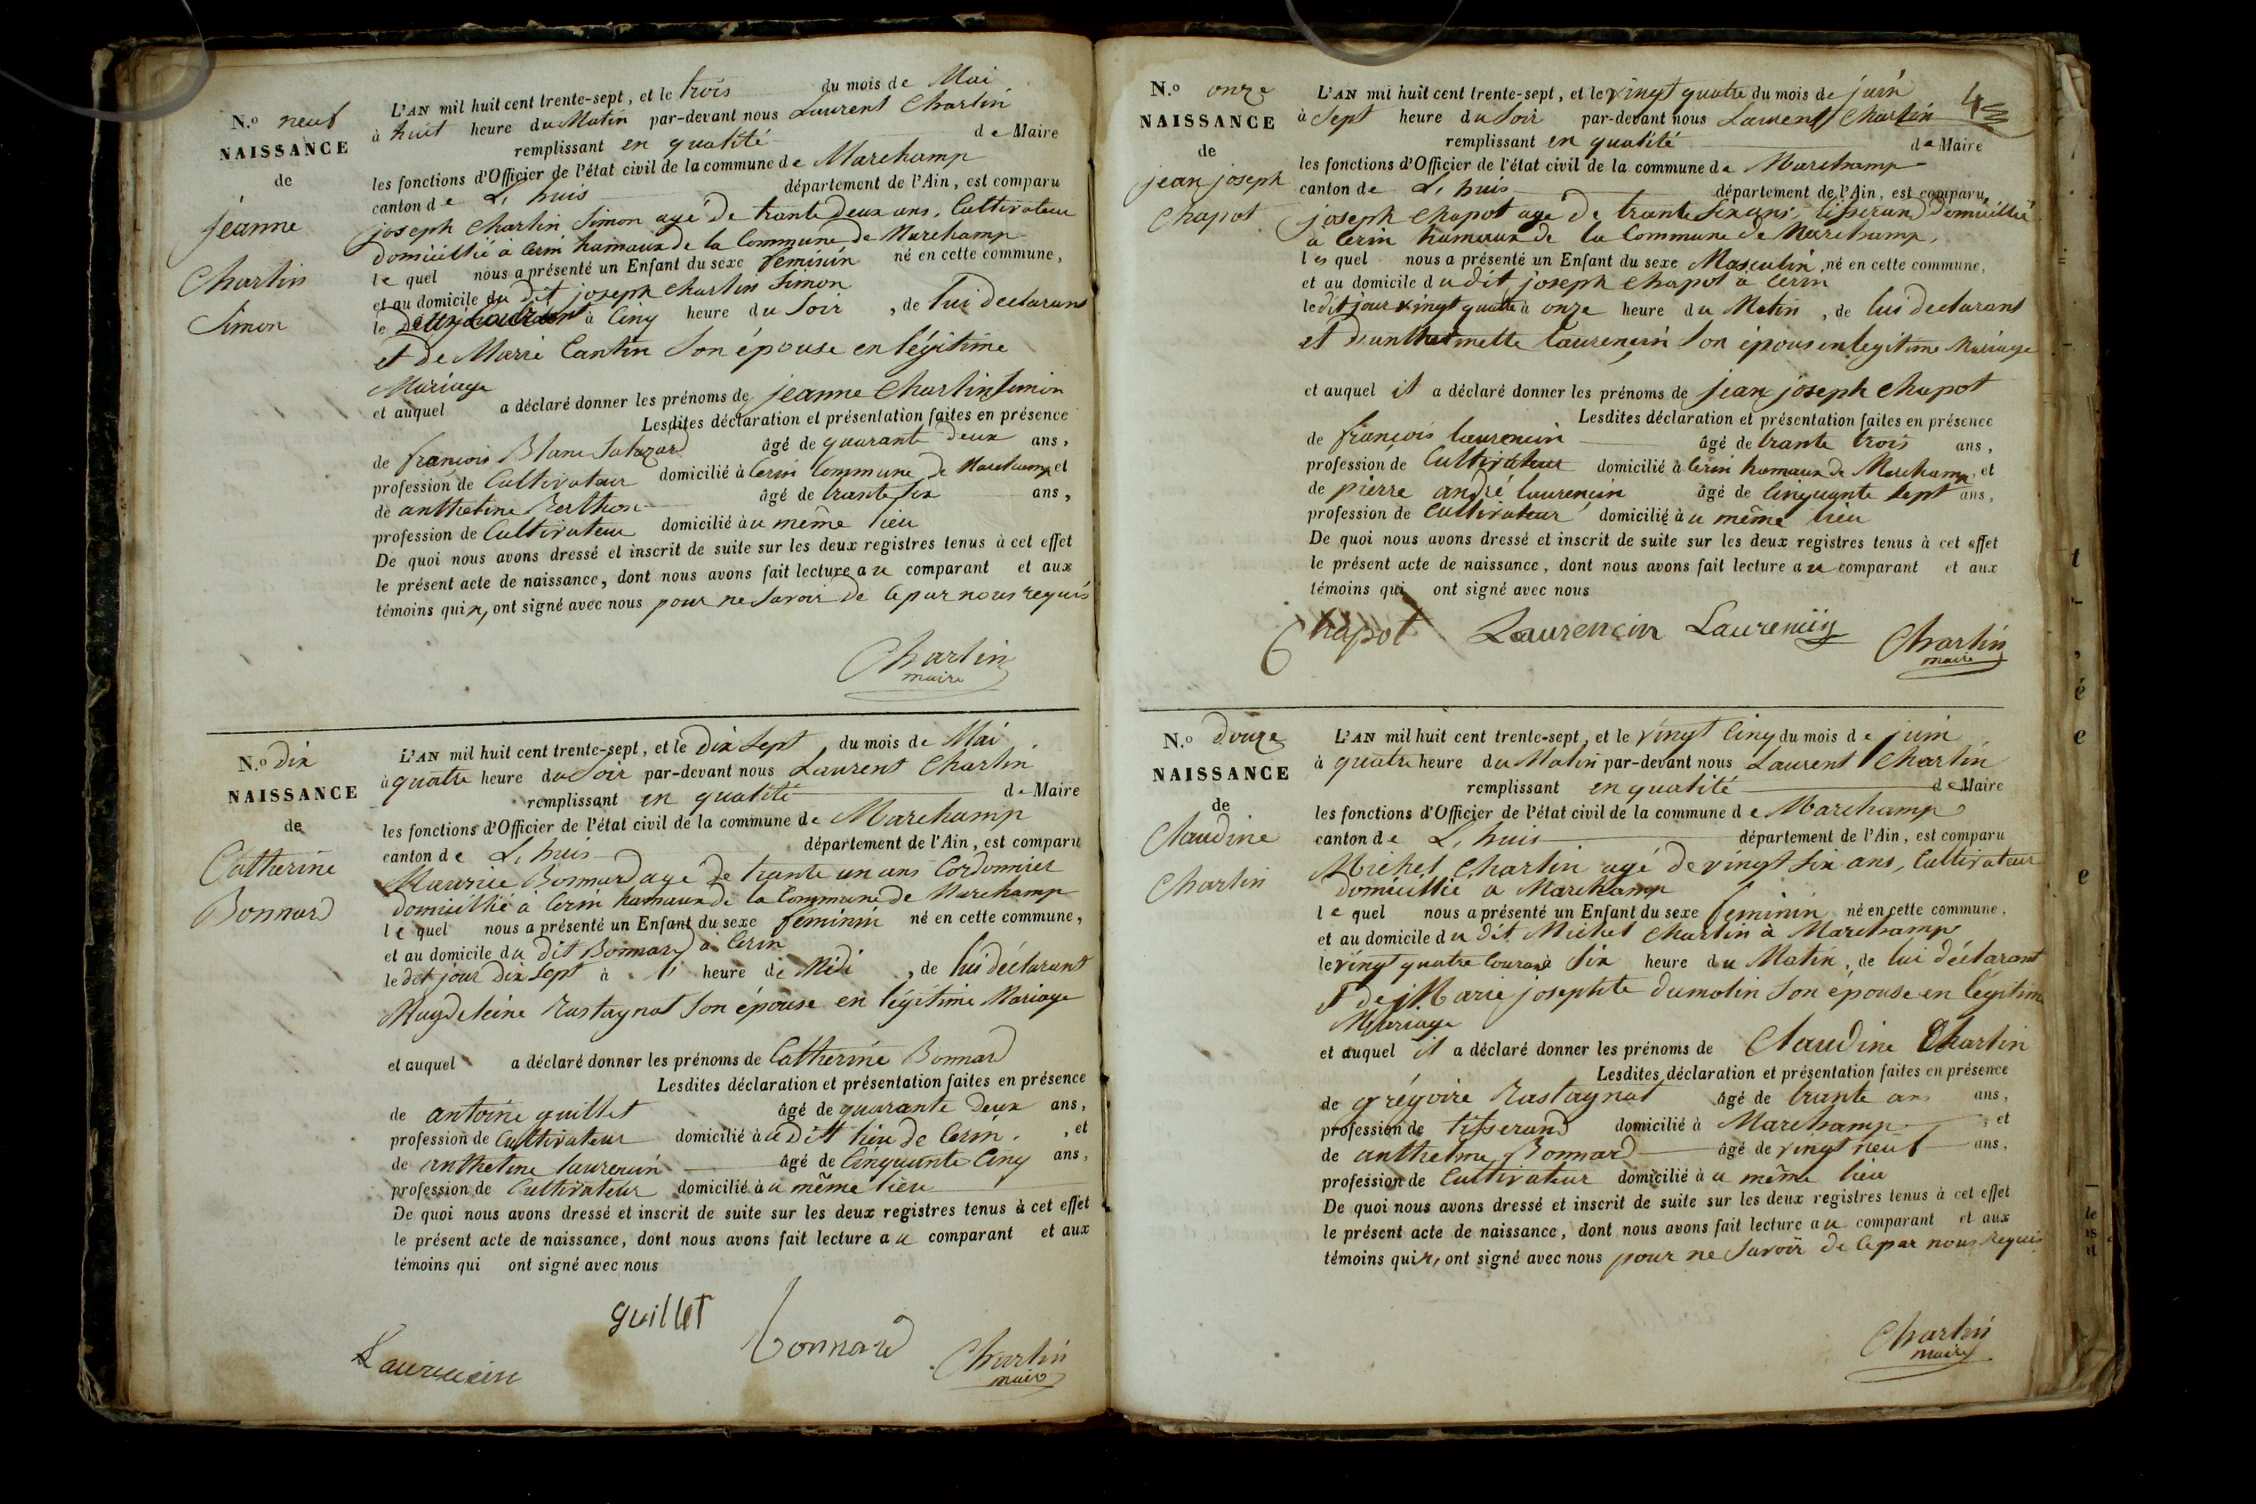 N.o neuf
NAISSANCE
de
jeanne
Charlin
Simon
L'AN mil huit cent trente-sept, et le trois du mois de Mai
à huit heure du Matin par-devant nous Laurent Charlin
remplissant en qualité de Maire
les fonctions d'Officier de l'état civil de la commune de Marchamp
canton de L'huis département de l'Ain, est comparu
joseph Charlin Simon agé de trante deux ans, Cultivateur
domicillié à Cerin hamaux de la Commune de Marchamp
le quel nous a présenté un Enfant du sexe feminin né en cette commune,
et au domicile du dit joseph Charlin Simon
le à Cinq heure du Soir, de lui declarant
et de Marie Cantin son épouse en légitime
Mariage
et auquel a déclaré donner les prénoms de jeanne Charlin Simon
Lesdites déclaration et présentation faites en présence
de françois Blanc âgé de quarante deux ans,
profession de Cultivateur domicilié à Cerin Commune de Marchamp et
de anthelme Berthon âgé de trante six ans,
profession de Cultivateur domicilié à u même lieu
De quoi nous avons dressé et inscrit de suite sur les deux registres tenus à cet effet
le présent acte de naissance, dont nous avons fait lecture au comparant et aux
témoins qui n, ont signé avec nous pour ne savoir de ce par nous requis
Charlin
maire
N.o dix
NAISSANCE
de
Catherine
Bonnard
L'AN mil huit cent trente-sept, et le dix sept du mois de Mai
à quatre heure du Soir par-devant nous Laurent Charlin
remplissant en qualité de Maire
les fonctions d'Officier de l'état civil de la commune de Marchamp
canton de L'huis département de l'Ain, est comparu
Maurice Bonnard agé de trante un ans Cordonnier
domicillié à Cerin hamaux de la Commune de Marchamp
le quel nous a présenté un Enfant du sexe feminin né en cette commune,
et au domicile du dit Bonnard à Cerin
le dit jour dix sept à heure de Midi, de lui déclarant
Magdeleine Rastagnat son épouse en légitime Mariage
et auquel a déclaré donner les prénoms de Catherine Bonnard
Lesdites déclaration et présentation faites en présence
de antoine guillet âgé de quarante deux ans,
profession de Cultivateur domicilié à u dit lieu de Cerin, et
de anthelme laurencin âgé de Cinquante Cinq ans,
profession de Cultivateur domicilié à u même lieu
De quoi nous avons dressé et inscrit de suite sur les deux registres tenus à cet effet
le présent acte de naissance, dont nous avons fait lecture au comparant et aux
témoins qui ont signé avec nous
guillet
Bonnard
Laurencin
Charlin
maire
N.o onze
NAISSANCE
de
jean joseph
Chapot
4
L'AN mil huit cent trente-sept, et le vingt quatre du mois de juin
à Sept heure du Soir par-devant nous Laurent Charlin
remplissant en qualité de Maire
les fonctions d'Officier de l'état civil de la commune de Marchamp
canton de L'huis département de l'Ain, est comparu
joseph Chapot agé de trante six ans, tisserand domicillié
à Cerin hamaux de la Commune de Marchamp,
le quel nous a présenté un Enfant du sexe Masculin, né en cette commune,
et au domicile du dit joseph Chapot à Cerin
le dit jour vingt quatre à onze heure du Matin, de lui declarant
et d'anthelmette laurencin son épouse en legitime Mariage
et auquel il a déclaré donner les prénoms de jean joseph Chapot
Lesdites déclaration et présentation faites en présence
de françois laurencin âgé de trante trois ans,
profession de Cultivateur domicilié à Cerin hamaux de Marchamp, et
de pierre andré laurencin âgé de Cinquante sept ans,
profession de Cultivateur domicilié à u même lieu
De quoi nous avons dressé et inscrit de suite sur les deux registres tenus à cet effet
le présent acte de naissance, dont nous avons fait lecture au comparant et aux
témoins qui ont signé avec nous
Chapot Laurencin Laurencin Charlin
maire
N.o douze
NAISSANCE
de
Claudine
Charlin
L'AN mil huit cent trente-sept, et le vingt Cinq du mois de juin
à quatre heure du Matin par-devant nous Laurent Charlin
remplissant en qualité de Maire
les fonctions d'Officier de l'état civil de la commune de Marchamp
canton de L'huis département de l'Ain, est comparu
Michel Charlin agé de vingt six ans, Cultivateur
domicillié a Marchamp
le quel nous a présenté un Enfant du sexe feminin né en cette commune,
et au domicile du dit Michel Charlin à Marchamp
le vingt quatre Courant à six heure du Matin, de lui déclarant
et de Marie josephte dumolin son épouse en légitime
Mariage
et auquel il a déclaré donner les prénoms de Claudine Charlin
Lesdites déclaration et présentation faites en présence
de grégoire Rastagnat âgé de trante ans,
profession de tisserand domicilié à Marchamp, et
de anthelme Bonnard âgé de vingt neuf ans,
profession de Cultivateur domicilié à u même lieu
De quoi nous avons dressé et inscrit de suite sur les deux registres tenus à cet effet
le présent acte de naissance, dont nous avons fait lecture au comparant et aux
témoins qui n, ont signé avec nous pour ne savoir de ce par nous requis
Charlin
maire